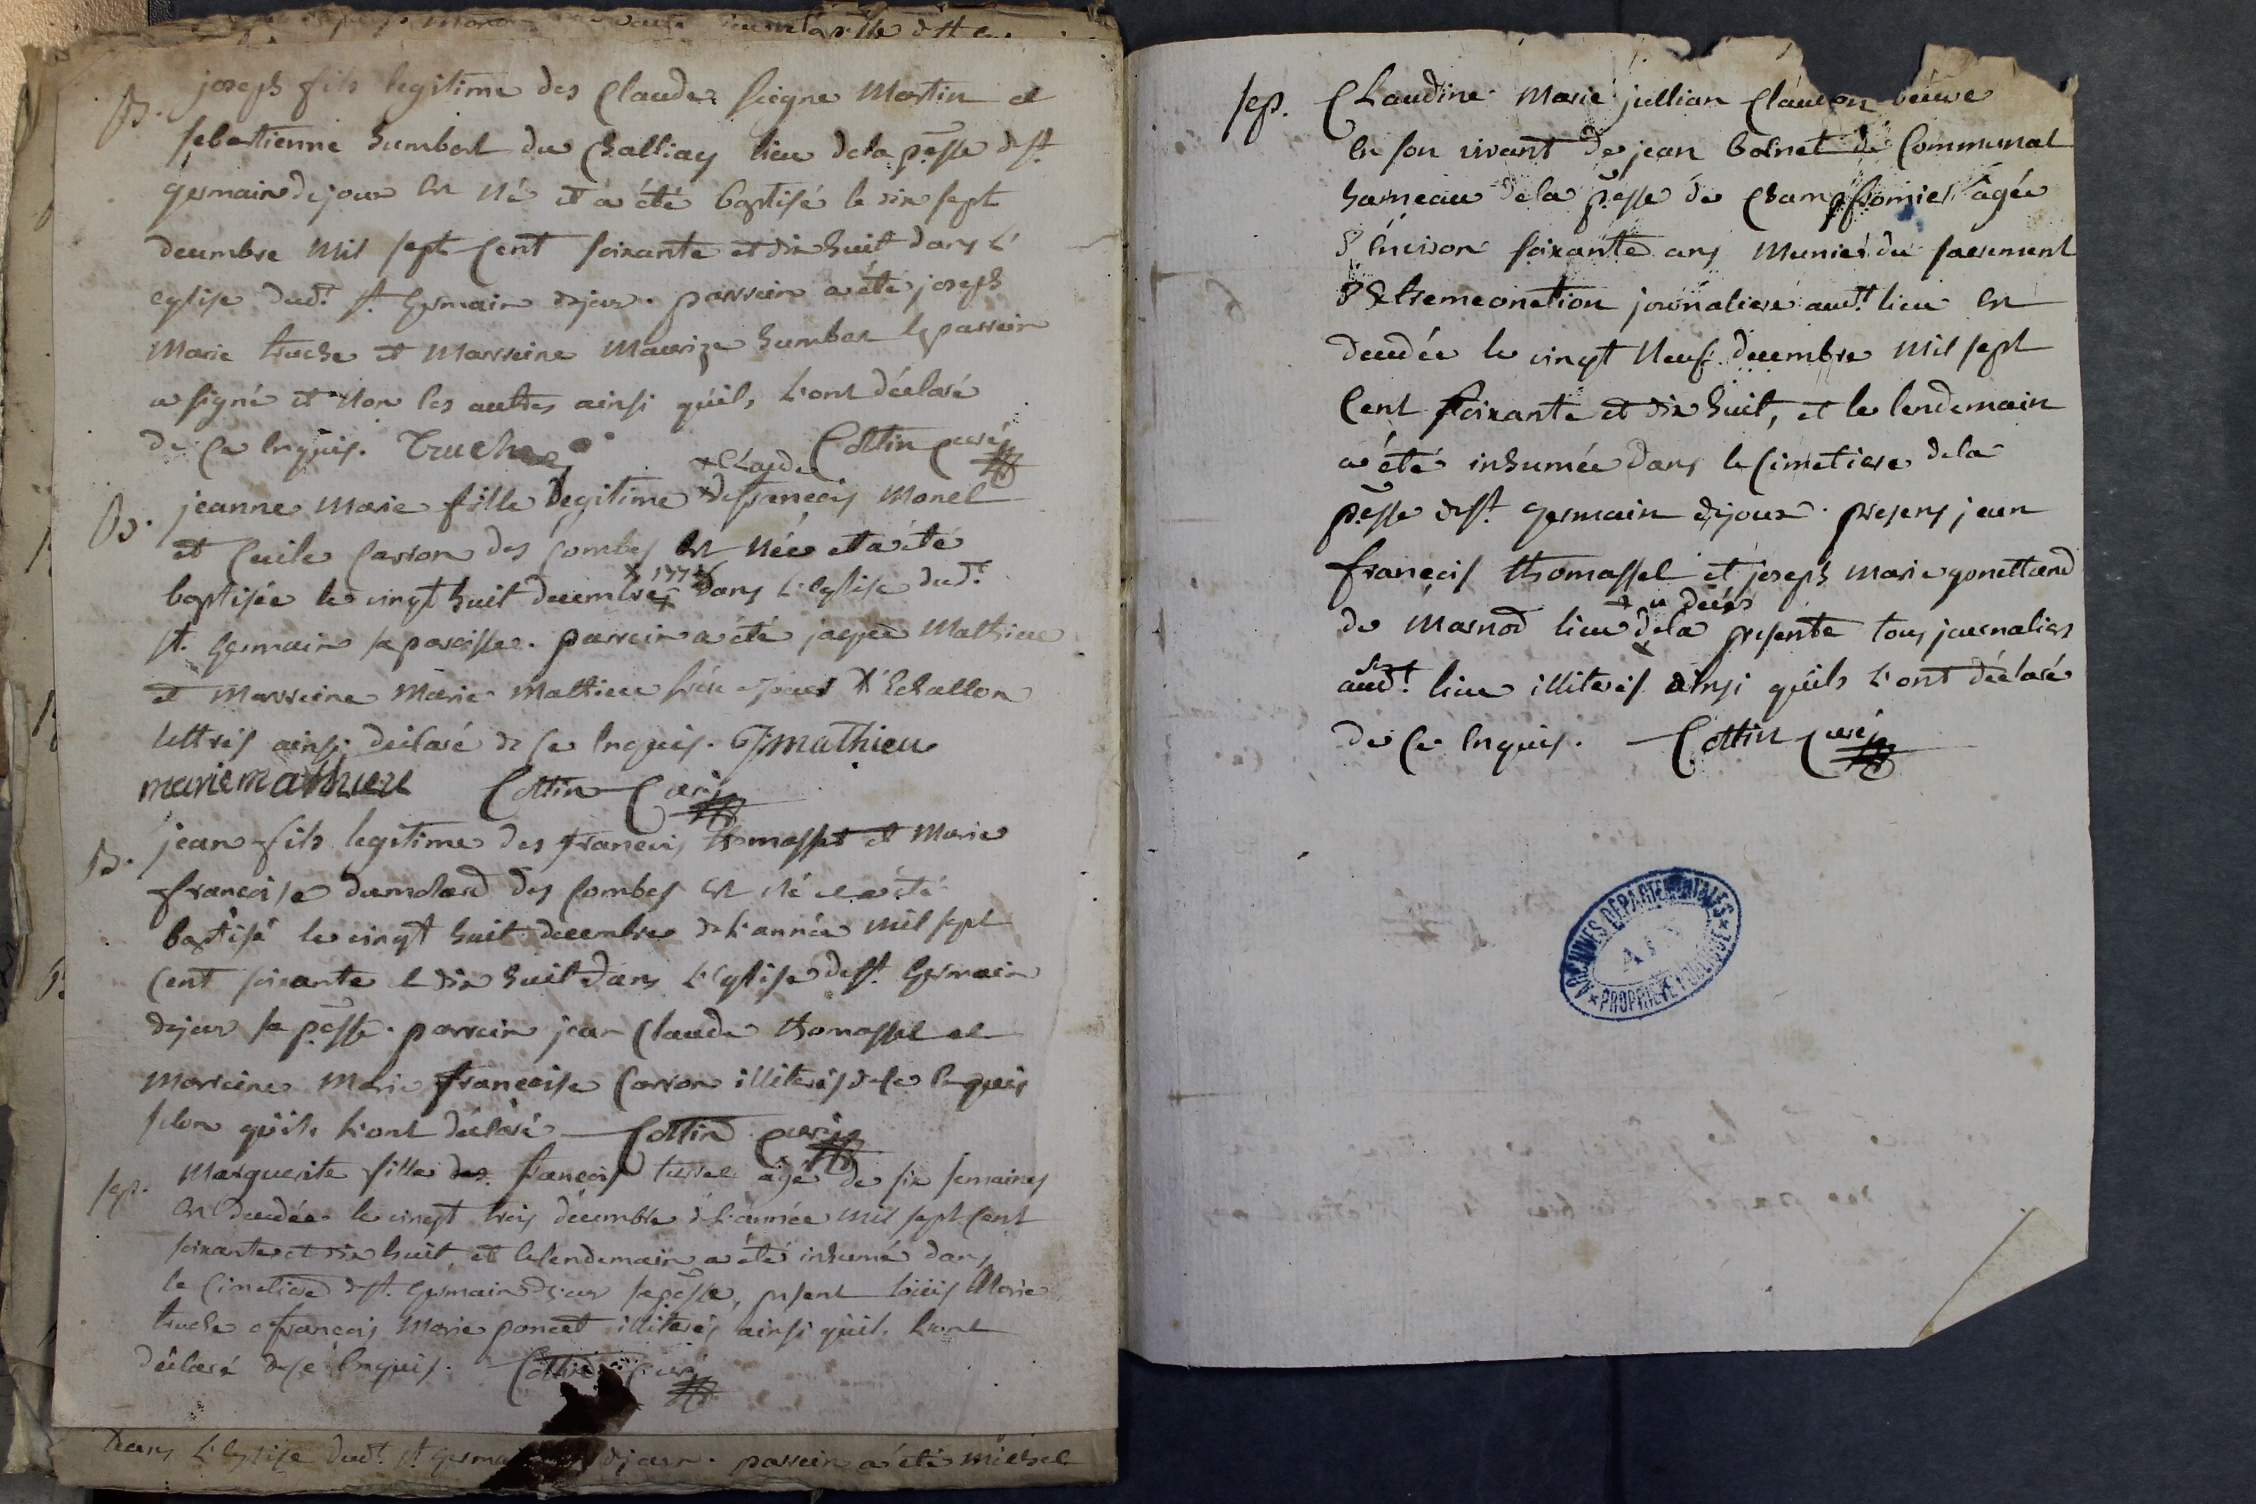 B. joseph fils legitime des Claude seigne Martin et
sebastienne humbert du Challiay lieu dela p.esse de st
germain dejoux est né et a été baptisé le dix sept
decembre mil sept cent soixante et dix huit dans l'
eglise dud.t st germain dejoux. parrein a été joseph
Marie truche et Marreine humber le parrein
a signé et non les autres ainsi qu'ils l'ont déclaré
de ce enquis. Truche Cottin curé
B. jeanne Marie fille legitime des Claude francois Monel
et Cecile Carron des Combes est née et a été
baptisée le vingt huit decembre dans l'eglise dud.t
st. germain sa paroisse. parrein a été Mathieu
et Marreine Marie Mathieu d'Echallon
lettrés ainsi declaré de ce enquis. Mathieu
marie mathieu Cottin Curé
B. jean fils legitime des francois thomasset et Marie
francoise dumolard des Combes est né et a été
baptisé le vingt huit decembre de l'année mil sept
cent soixante et dix huit dans l'eglise de st. germain
dejoux sa p.esse. parrein jean Claude thomasset et
Marreine Marie francoise Carron illiterés de ce enquis
selon qu'ils l'ont déclaré Cottin curé
sep. Marguerite fille des francois agé de six semaines
est decedée le vingt trois decembre de l'année mil sept cent
soixante et dix huit, et le lendemain a été inhumé dans
le Cimetiere de st. germain dejoux sa p.esse, present loüis Marie
truche et francois Marie poncet illiterés ainsi qu'ils l'ont
déclaré de ce enquis. Cottin curé
dans l'eglise dud.t st germain dejoux. parrein a été michel
sep. Claudine Marie jullian veuve
en son vivant de jean de Communal
hameau dela p.esse de Champfromier agée
d'environ soixante ans Munie du sacrement
d'Extremeonction journaliere aud.t lieu est
decedée le vingt neuf decembre mil sept
cent soixante et dix huit, et le lendemain
a été inhumée dans le Cimetiere dela
p.esse de st. germain dejoux. presens jean
francois thomasset et joseph marie
de Marnod lieu dela presente tous journaliers
aud.t lieu illiterés ainsi qu'ils l'ont déclaré
de ce enquis. Cottin curé
ARCHIVES DEPARTEMENTALES
AIN
PROPRIETE PUBLIQUE